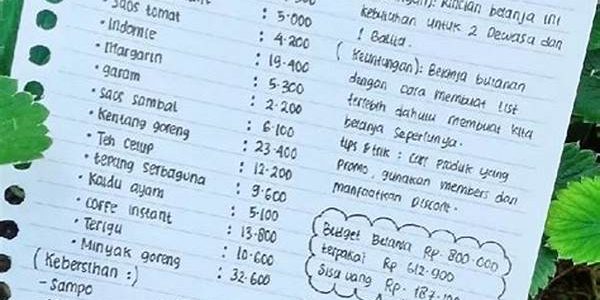 : 5.000
• Saos tomat : 4.200
• Indomie : 19.400
• Margarin : 5.300
• garam : 2.200
• saos sambal : 6.100
• Kentang goreng : 23.400
• Teh celup : 12.200
• tepung serbaguna : 9.600
• Kaldu ayam : 5.100
• coffe instant : 13.800
• Terigu : 10.600
• Minyak goreng : 32.600
(Kebersihan :)
- Sampo
Rincian belanja ini
kebutuhan untuk 2 Dewasa dan
1 Balita.
(Keuntungan): Belanja bulanan
dengan cara membuat list
terlebih dahulu membuat kita
belanja seperlunya.
tips & trik : cari produk yang
promo, gunakan members dan
manfaatkan Discont.
Budget Belanja Rp. 800.000
terpakai Rp 612.900
Sisa uang Rp. 187.100